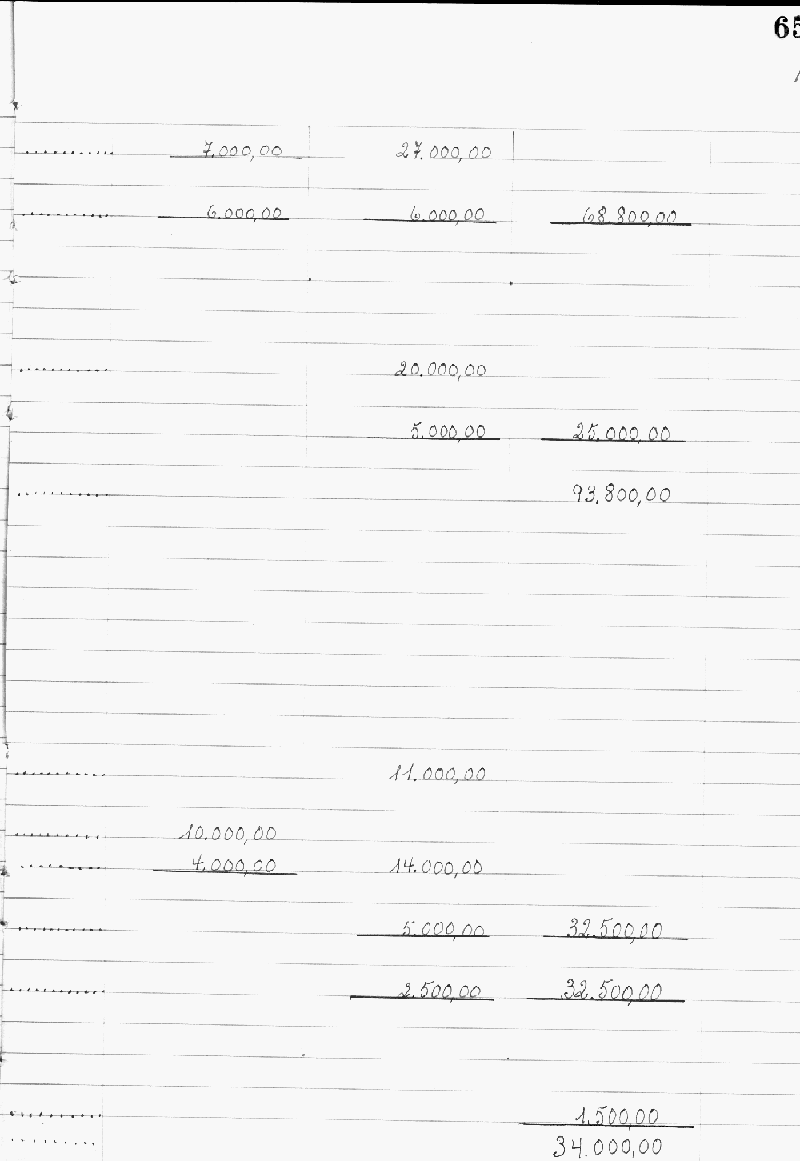 65
7.000,00 27.000,00
6.000,00 6.000,00 68.800,00
20.000,00
5.000,00 25.000,00
93.800,00
11.000,00
10.000,00
4.000,00 14.000,00
5.000,00 32.500,00
2.500,00 32.500,00
1.500,00
34.000,00